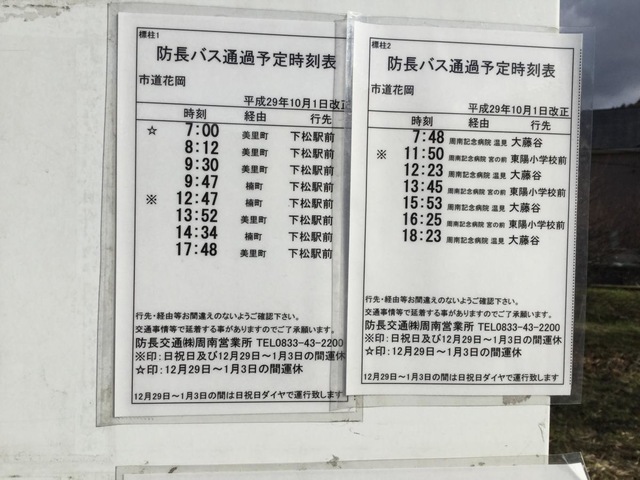 標柱1
防長バス通過予定時刻表
市道花岡
平成29年10月1日改正
時刻 経由 行先
☆ 7:00 美里町 下松駅前
8:12 美里町 下松駅前
9:30 美里町 下松駅前
9:47 楠町 下松駅前
※ 12:47 楠町 下松駅前
13:52 美里町 下松駅前
14:34 楠町 下松駅前
17:48 美里町 下松駅前
行先・経由等お間違えのないようご確認下さい。
交通事情等で延着する事がありますのでご了承願います。
防長交通㈱周南営業所 TEL0833-43-2200
※印:日祝日及び12月29日~1月3日の間運休
☆印:12月29日~1月3日の間運休
12月29日~1月3日の間は日祝日ダイヤで運行致します
標柱2
防長バス通過予定時刻表
市道花岡
平成29年10月1日改正
時刻 経由 行先
7:48 周南記念病院 温見 大藤谷
※ 11:50 周南記念病院 宮の前 東陽小学校前
12:23 周南記念病院 温見 大藤谷
13:45 周南記念病院 宮の前 東陽小学校前
15:53 周南記念病院 温見 大藤谷
16:25 周南記念病院 宮の前 東陽小学校前
18:23 周南記念病院 温見 大藤谷
行先・経由等お間違えのないようご確認下さい。
交通事情等で延着する事がありますのでご了承願います。
防長交通㈱周南営業所 TEL0833-43-2200
※印:日祝日及び12月29日~1月3日の間運休
12月29日~1月3日の間は日祝日ダイヤで運行致します